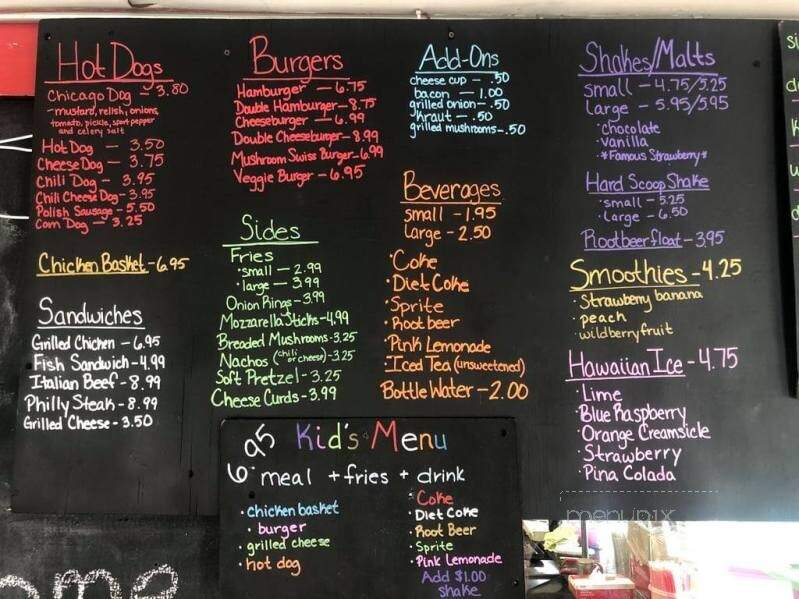 Hot Dogs
Chicago Dog - 3.80
- mustard, relish, onions,
tomato, pickle, sport pepper
and celery salt
Hot Dog - 3.50
Cheese Dog - 3.75
Chili Dog - 3.95
Chili Cheese Dog - 3.95
Polish Sausage - 5.50
Corn Dog - 3.25
Chicken Basket - 6.95
Sandwiches
Grilled Chicken - 6.95
Fish Sandwich - 4.99
Italian Beef - 8.99
Philly Steak - 8.99
Grilled Cheese - 3.50
Burgers
Hamburger - 6.75
Double Hamburger - 8.75
Cheeseburger - 6.99
Double Cheeseburger - 8.99
Mushroom Swiss Burger - 6.99
Veggie Burger - 6.95
Sides
Fries
• small - 2.99
• large - 3.99
Onion Rings - 3.99
Mozzarella Sticks - 4.99
Breaded Mushrooms - 3.25
Nachos (chili or cheese) - 3.25
Soft Pretzel - 3.25
Cheese Curds - 3.99
Add-Ons
cheese cup - .50
bacon - 1.00
grilled onion - .50
Kraut - .50
grilled mushrooms - .50
Beverages
small - 1.95
large - 2.50
• Coke
• Diet Coke
• Sprite
• Root beer
• Pink Lemonade
• Iced Tea (unsweetened)
Bottle Water - 2.00
Shakes/Malts
small - 4.75/5.25
large - 5.95/5.95
• chocolate
• vanilla
• *Famous Strawberry*
Hard Scoop Shake
• small - 5.25
• large - 6.50
Rootbeer float - 3.95
Smoothies - 4.25
• Strawberry banana
• peach
• wildberry fruit
Hawaiian Ice - 4.75
• Lime
• Blue Raspberry
• Orange Creamsicle
• Strawberry
• Pina Colada
Kid's Menu
meal + fries + drink
• chicken basket
• burger
• grilled cheese
• hot dog
• Coke
• Diet Coke
• Root Beer
• Sprite
• Pink Lemonade
Add $1.00
shake
menupix